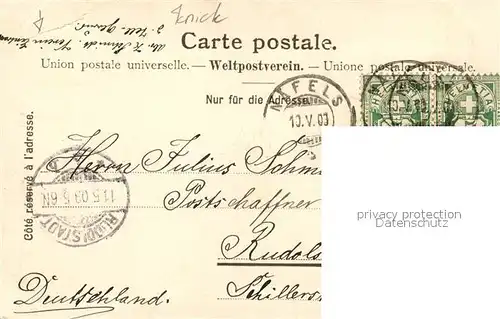 Knick
Carte postale.
Union postale universelle. — Weltpostverein. — Unione postale universale.
Nur für die Adresse.
NÄFELS
10.V.03
HELVETIA
Côté réservé à l'adresse.
Herrn Julius Schm
Postschaffner
Rudols
Schillers
Deutschland.
RUDOLSTADT
11.5.03 5-6N
privacy protection
Datenschutz